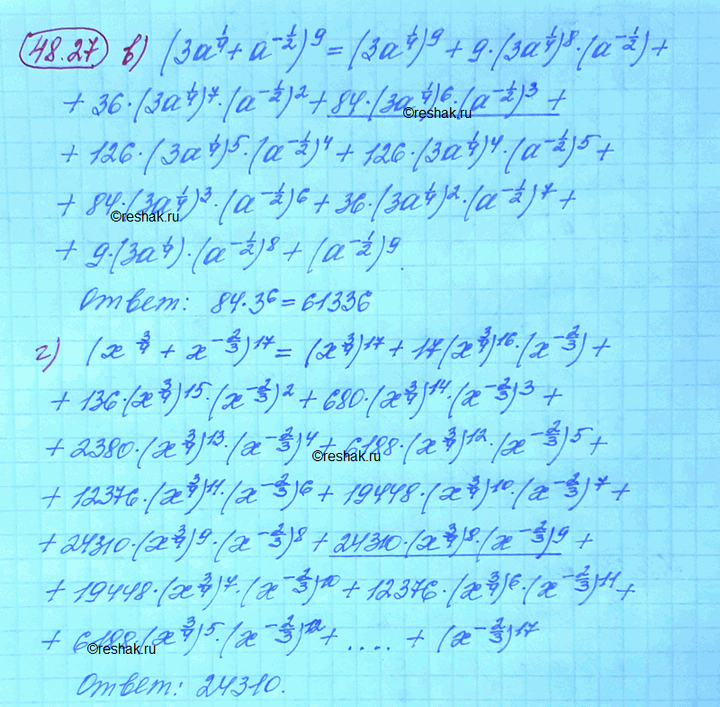 48.27 в) (3a^{1/4} + a^{-1/2})^9 = (3a^{1/4})^9 + 9·(3a^{1/4})^8·(a^{-1/2}) +
+ 36·(3a^{1/4})^7·(a^{-1/2})^2 + 84·(3a^{1/4})^6·(a^{-1/2})^3 +
©reshak.ru
+ 126·(3a^{1/4})^5·(a^{-1/2})^4 + 126·(3a^{1/4})^4·(a^{-1/2})^5 +
+ 84·(3a^{1/4})^3·(a^{-1/2})^6 + 36·(3a^{1/4})^2·(a^{-1/2})^7 +
©reshak.ru
+ 9·(3a^{1/4})·(a^{-1/2})^8 + (a^{-1/2})^9.
Ответ: 84·3^6 = 61336
г) (x^{3/4} + x^{-2/3})^17 = (x^{3/4})^17 + 17(x^{3/4})^16·(x^{-2/3}) +
+ 136·(x^{3/4})^15·(x^{-2/3})^2 + 680·(x^{3/4})^14·(x^{-2/3})^3 +
+ 2380·(x^{3/4})^13·(x^{-2/3})^4 + 6188·(x^{3/4})^12·(x^{-2/3})^5 +
©reshak.ru
+ 12376·(x^{3/4})^11·(x^{-2/3})^6 + 19448·(x^{3/4})^10·(x^{-2/3})^7 +
+ 24310·(x^{3/4})^9·(x^{-2/3})^8 + 24310·(x^{3/4})^8·(x^{-2/3})^9 +
+ 19448·(x^{3/4})^7·(x^{-2/3})^10 + 12376·(x^{3/4})^6·(x^{-2/3})^11 +
+ 6188·(x^{3/4})^5·(x^{-2/3})^12 + .... + (x^{-2/3})^17
©reshak.ru
Ответ: 24310.